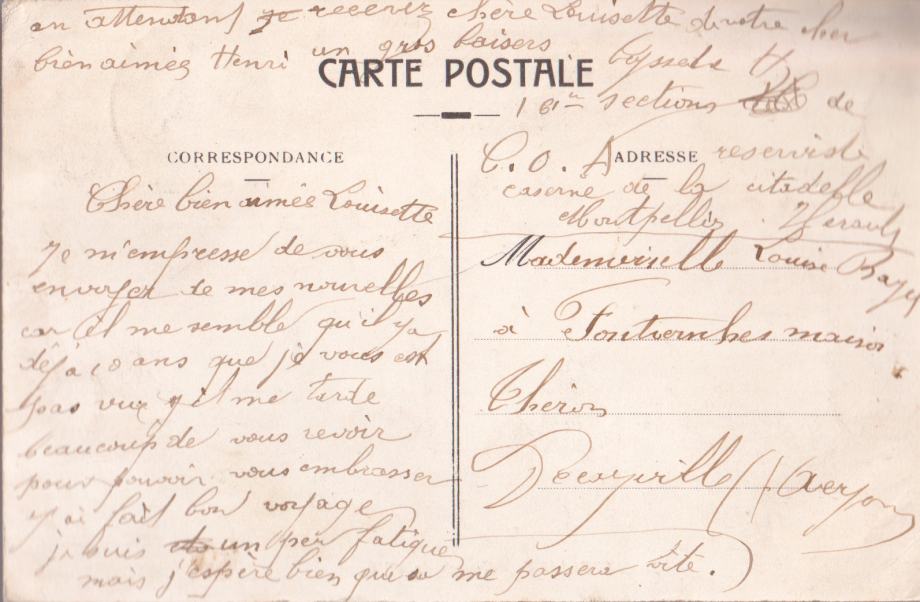 CARTE POSTALE
CORRESPONDANCE
Chère bien aimée Louisette
Je m'empresse de vous
envoyer de mes nouvelles
car il me semble qu'il y a
déja 10 ans que je vous est
pas vue il me tarde
beaucoup de vous revoir
pour pouvoir vous embrasser
j'ai fait bon voyage
je suis un peu fatigue
mais j'espère bien que sa me passera vite.
en attendant je recevez chère Louisette de votre cher
bien aimée Henri un gros baisers
H
16 sections de
C. O. A reserviste
caserne de la citadelle
Montpellier Herault
ADRESSE
Mademoiselle Louise
à Fontvernhes maison
Théron
Decazville (Aveyron)